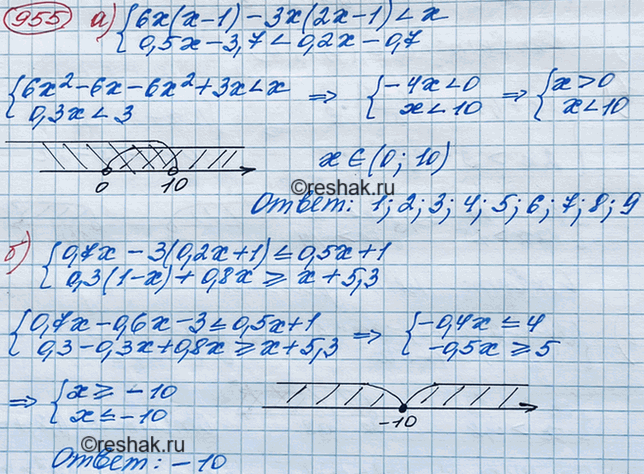 955 а) {6x(x-1) - 3x(2x-1) < x
0,5x - 3,7 < 0,2x - 0,7
{6x² - 6x - 6x² + 3x < x ⇒ {-4x < 0 ⇒ {x > 0
0,3x < 3 x < 10 x < 10
0 10 x ∈ (0; 10)
©reshak.ru
Ответ: 1; 2; 3; 4; 5; 6; 7; 8; 9
б) {0,7x - 3(0,2x+1) ≤ 0,5x + 1
0,3(1-x) + 0,8x ≥ x + 5,3
{0,7x - 0,6x - 3 ≤ 0,5x + 1 ⇒ {-0,4x ≤ 4
0,3 - 0,3x + 0,8x ≥ x + 5,3 -0,5x ≥ 5
⇒ {x ≥ -10
x ≤ -10
-10
©reshak.ru
Ответ: -10